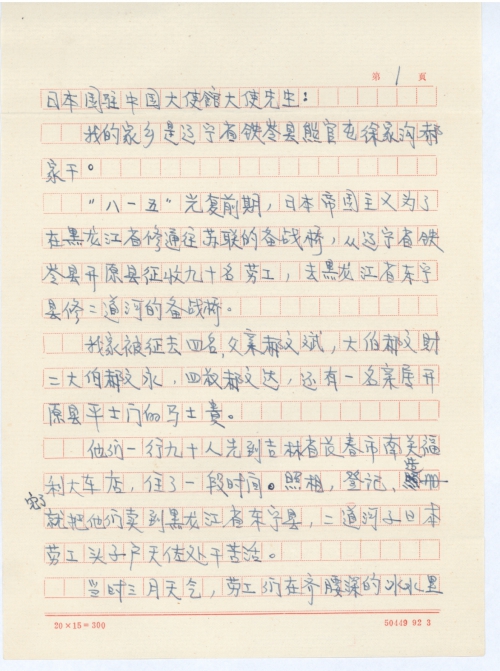 第 1 頁
日本国驻中国大使馆大使先生：
我的家乡是辽宁省铁岭县熊官屯徐家沟郝
家干。
“八一五”光复前期，日本帝国主义为了
在黑龙江省修通往苏联的备战桥，从辽宁省铁
岭县开原县征收九十名劳工，去黑龙江省东宁
县修二道河的备战桥。
我家被征去四名，父亲郝文斌，大伯郝文财
二大伯郝文永，四叔郝文达，还有一名亲属开
原县平士门的马士贵。
他们一行九十人先到吉林省长春市南关福
利大车店，住了一段时间。照相，登记、造册
完了就把他们卖到黑龙江省东宁县，二道河子日本
劳工头子户天佐处干苦活。
当时三月天气，劳工们在齐腰深的冰水里
20×15=300
50449 92 3